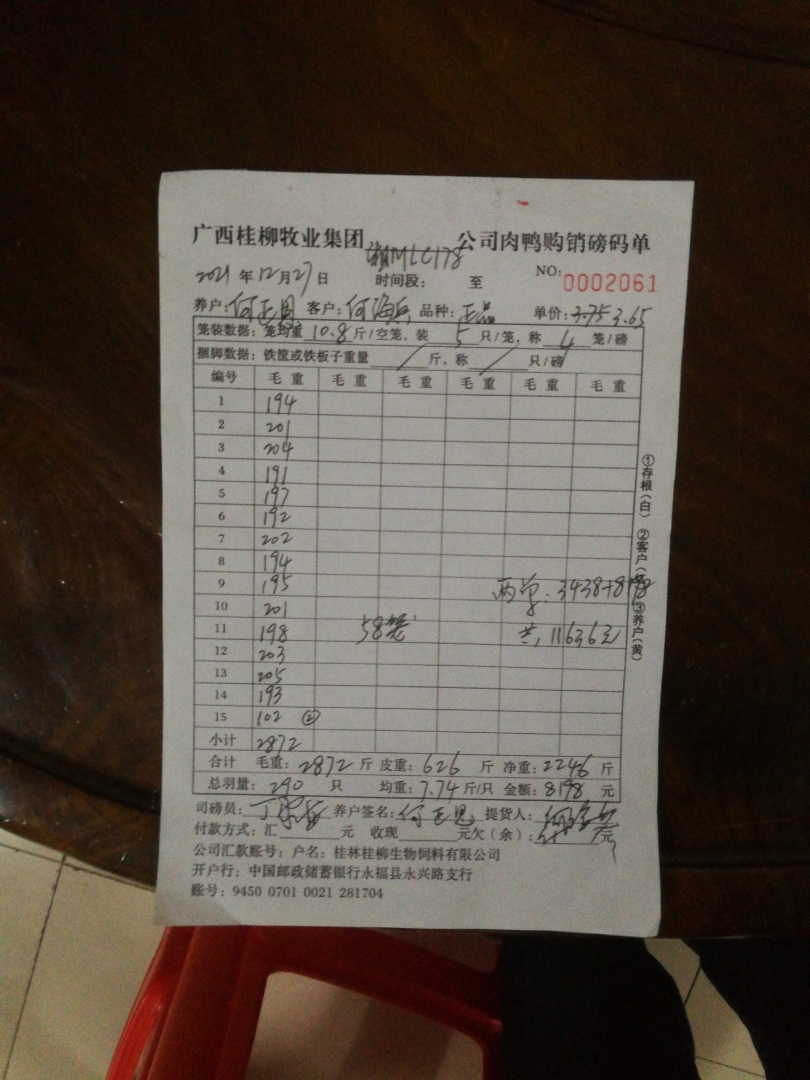 广西桂柳牧业集团 公司肉鸭购销磅码单
MLC178
2021 年 12 月 27 日 时间段: 至 NO: 0002061
养户: 何正恩 客户: 何海兵 品种: 正品 单价: 3.75 3.65
笼装数据: 笼均重 10.8 斤/空笼, 装 5 只/笼, 称 4 笼/磅
捆脚数据: 铁筐或铁板子重量 / 斤, 称 / 只/磅
编号 毛重 毛重 毛重 毛重 毛重 毛重
1 194
2 201
3 204
4 191
5 197
6 192
7 202
8 194
9 195 两单: 3438+8198
10 201
11 198 58笼 共, 11636元
12 203
13 205
14 193
15 102 ②
小计 2872
合计 毛重: 2872 斤 皮重: 626 斤 净重: 2246 斤
总羽量: 290 只 均重: 7.74 斤/只 金额: 8198 元
司磅员: 丁 养户签名: 何正恩 提货人:
付款方式: 汇 元 收现 元欠(余): 元
公司汇款账号: 户名: 桂林桂柳生物饲料有限公司
开户行: 中国邮政储蓄银行永福县永兴路支行
账号: 9450 0701 0021 281704
①存根(白) ②客户( ③养户(黄)